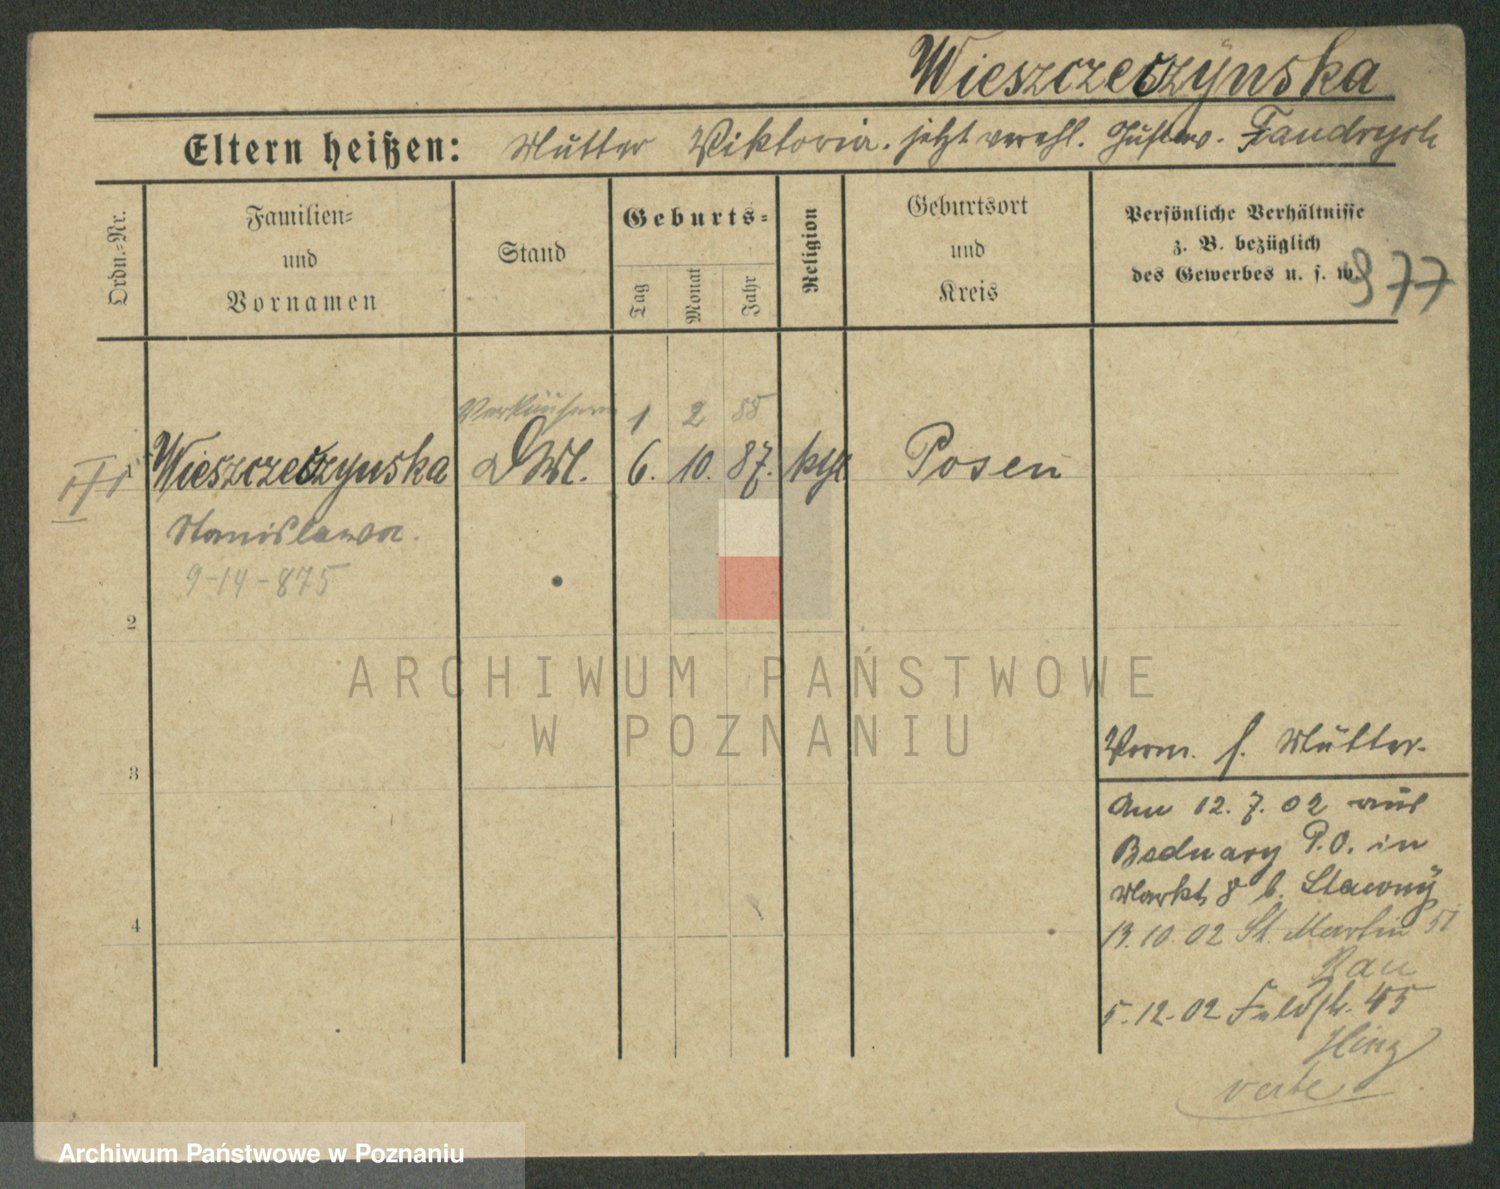 Wieszczeczynska
Eltern heißen: Mutter Viktoria. jetzt verehl. Gustav. Fandrych
Ordn.-Nr.
Familien-
und
Vornamen
Stand
Geburts-
Tag
Monat
Jahr
Religion
Geburtsort
und
Kreis
Persönliche Verhältnisse
z. B. bezüglich
des Gewerbes u. s. w.
977
Verkäuferin 1 2 88
1 Wieszczeczynska 6. 10. 87. kth Posen
Stanislawa.
9-14-875
2
3
4
ARCHIWUM PAŃSTWOWE
W POZNANIU
Vorm. s. Mutter.
Am 12. 7. 02 aus
Bednary P.O. in
Markt 8 b. Slawny
13.10.02 St. Martin 51
Rau
5.12.02 Feldstr. 45
verte
Archiwum Państwowe w Poznaniu